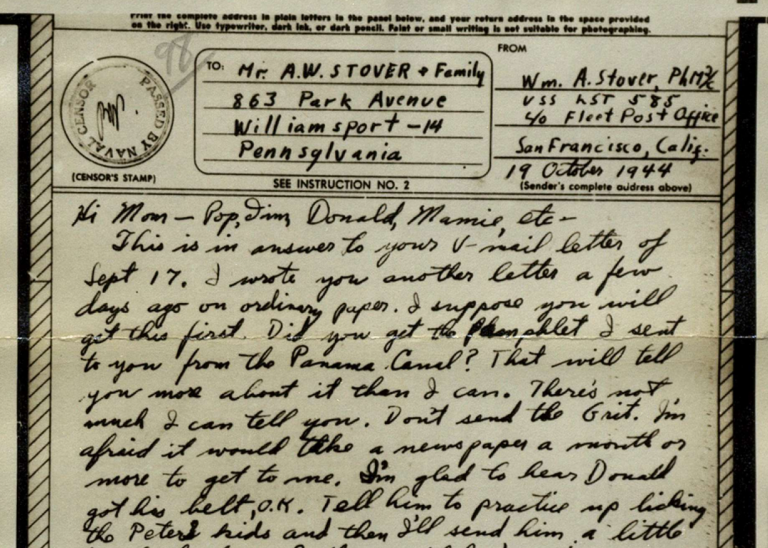 Print the complete address in plain letters in the panel below, and your return address in the space provided
on the right. Use typewriter, dark ink, or dark pencil. Faint or small writing is not suitable for photographing.
98
PASSED BY NAVAL CENSOR
(CENSOR'S STAMP)
TO:
Mr. A.W. STOVER + Family
863 Park Avenue
Williamsport -14
Pennsylvania
SEE INSTRUCTION NO. 2
FROM
Wm. A. Stover, PhM2/c
USS LST 585
c/o Fleet Post Office
San Francisco, Calif.
19 October 1944
(Sender's complete address above)
Hi Mom - Pop, Jim, Donald, Mamie, etc -
This is in answer to your V-mail letter of
Sept 17. I wrote you another letter a few
days ago on ordinary paper. I suppose you will
get this first. Did you get the pamphlet I sent
to you from the Panama Canal? That will tell
you more about it than I can. There's not
much I can tell you. Don't send the Grit. I'm
afraid it would take a newspaper a month or
more to get to me. I'm glad to hear Donald
got his belt, O.K. Tell him to practice up licking
the Peters kids and then I'll send him a little